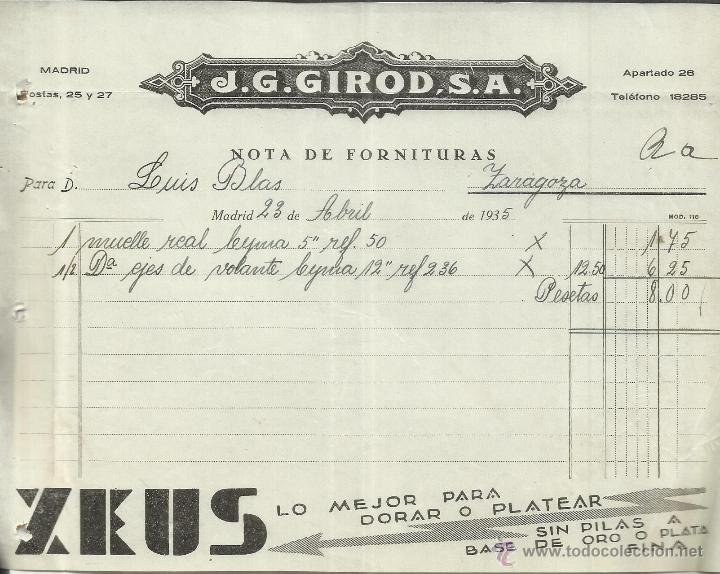 J.G. GIROD, S.A.
MADRID
Postas, 25 y 27
Apartado 26
Teléfono 18285
NOTA DE FORNITURAS
Para D. Luis Blas Zaragoza
Madrid 23 de Abril de 1935
MOD. 110
1 muelle real Cyma 5''' ref. 50 X 1 75
1/2 Dª ejes de volante Cyma 12''' ref 236 X 12.50 6 25
Pesetas 8.00
ZEUS
LO MEJOR PARA
DORAR O PLATEAR
SIN PILAS A
BASE DE ORO O PLATA
FINA
© www.todocoleccion.net